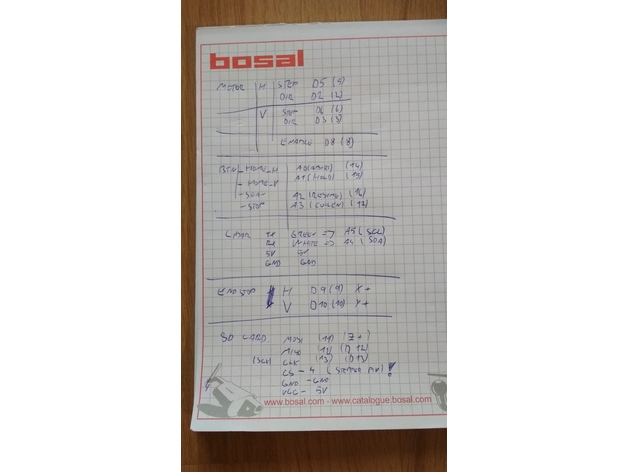 bosal
MOTOR H STEP D5 (5)
DIR D2 (2)
V STEP D6 (6)
DIR D3 (3)
ENABLE D8 (8)
BTN - HOME_H A0 (ABORT) (14)
- HOME_V A1 (HOLD) (15)
A2 (RESUME) (16)
- STOP A3 (COOLEN) (17)
LIDAR GREEN => A5 (SCL)
WHITE => A4 (SDA)
5V 5V
GND GND
ENDSTOP H D9 (9) X+
V D10 (10) Y+
SD CARD MOSI (11) (Z+)
MISO (12) (D12)
(SCK) CLK (13) (D13)
CS - 4 (STEPPER PIN) !
GND - GND
VCC - 5V
www.bosal.com - www.catalogue.bosal.com